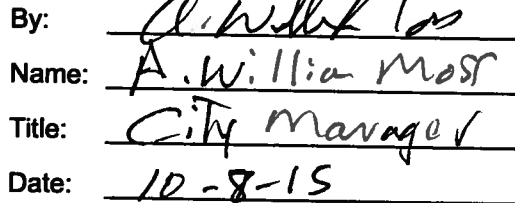 By:
Name: A. William Moss
Title: City Manager
Date: 10-8-15